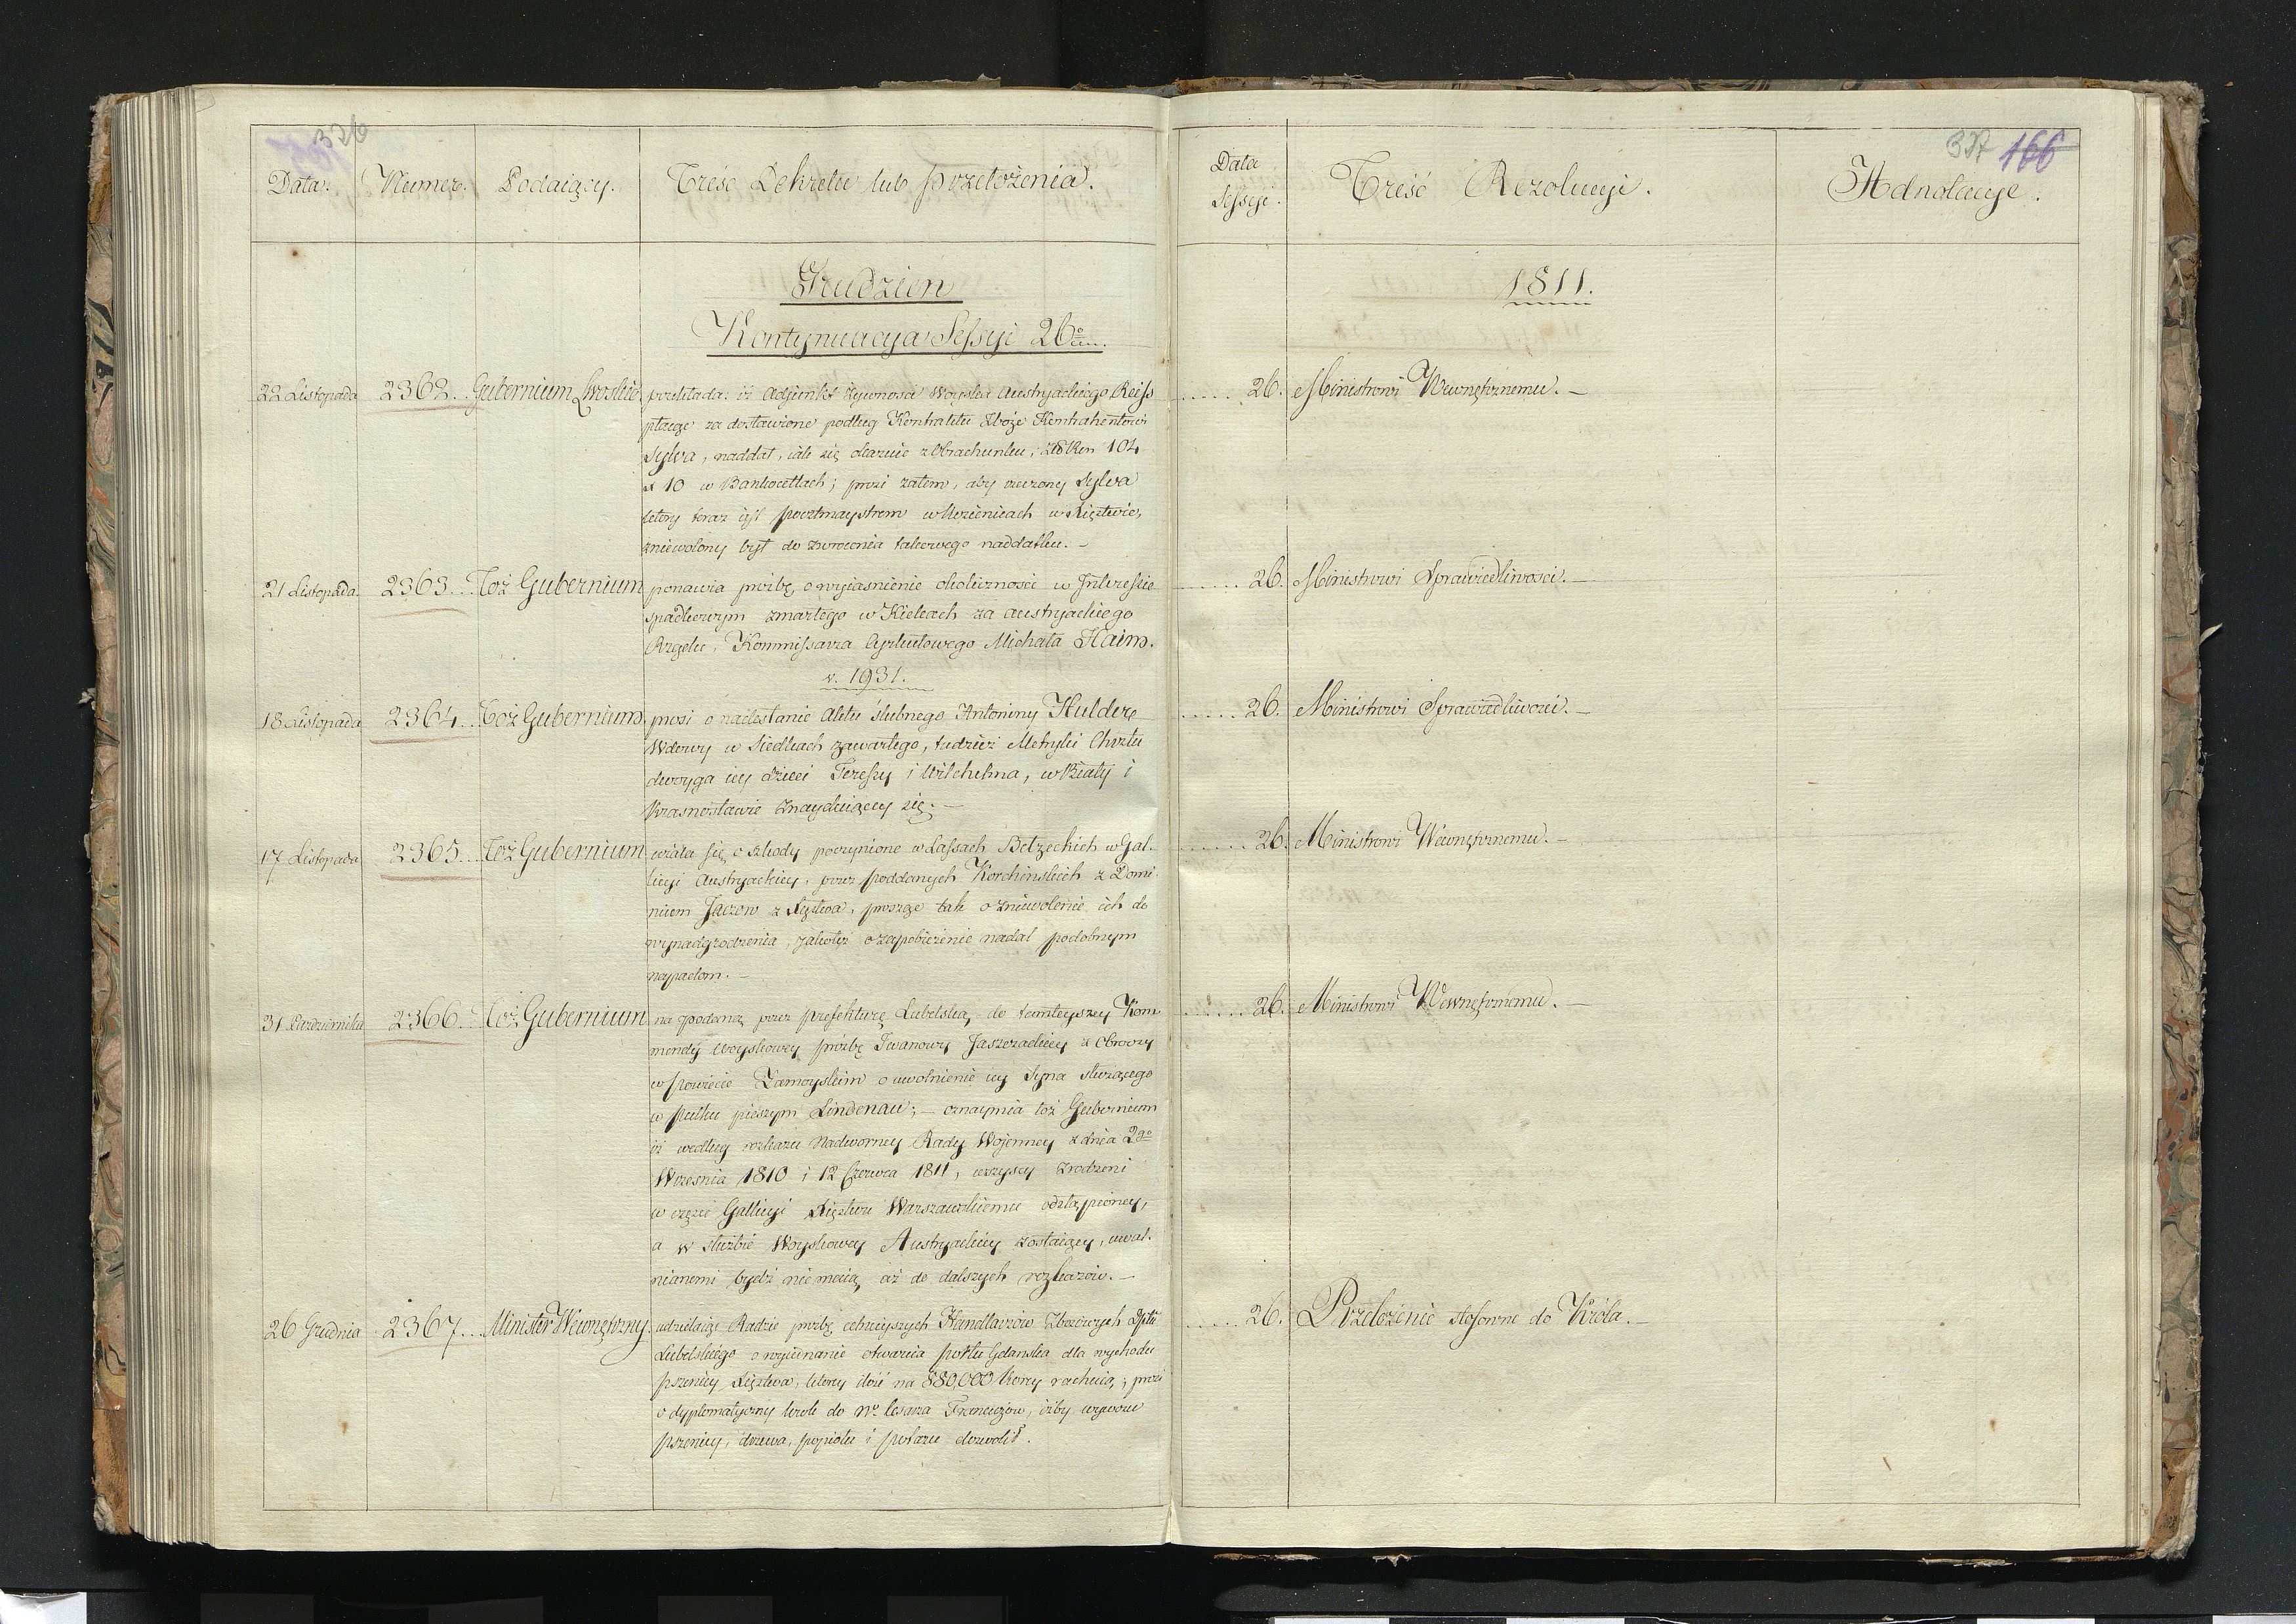 326
Data.
Numer.
Podaiący.
Treść Dekretu lub przełożenia.
Grudzień
Kontynuacya Sessyi 26o
22 Listopada 2362. Gubernium Lwoskie przekłada: iż Adjunkt żywności Woyska Austryackiego Reiss
płacąc za dostawione podług Kontraktu Zboże Kontrahentowi
Sylva, naddał, iak się okazuie z Obrachunku, 104
x 10 w Bankocetlach; prosi zatem, aby rzeczony Sylva
który teraz iest pocztmaystrem w Kozienicach w Xięztwie,
zniewolony był do zwrócenia takowego naddatku. –
21 Listopada. 2363. Toż Gubernium ponawia prośbę o wyiaśnienie okoliczności w Interessie
spadkowym zmarłego w Kielcach za austryackiego
Rządu, Kommissarza Cyrkułowego Michała Haim.
v. 1931.
18 Listopada 2364. Toż Gubernium. prosi o nadesłanie Aktu ślubnego Antoniny Hulderę
Wdowy w Siedlcach zawartego, tudzież Metryki Chrztu
dwoyga iey dzieci Teressy i Wilchelma, w Biały i
Krasnostawie znayduiącey się. –
17 Listopada 2365. Toż Gubernium użala się o szkody poczynione w Lassach Bełzeckich w Gal-
licyi Austryackiey, przez poddanych Korchinskich z Domi
nium z Xięztwa, prosząc tak o zniewolenie ich do
wynadgrodzenia, jakoteż o zapobieżenie nadal podobnym
napadom. –
31 Października 2366. Toż Gubernium na podaną przez Prefekturę Lubelską, do tamteyszey Kom
mendy woyskowey prośbę Iwanowy Jaszczackiey z Obroczy
w Powiecie Zamoyskim o uwolnienie iey Syna służącego
w pułku pieszym Lindenau; – oznaymia toż Gubernium
iż według rozkazu Nadworney Rady Wojenney z dnia 2go
Września 1810 i 12 Czerwca 1811, wszyscy zrodzeni
w części Gallicyi Xięztwu Warszawskiemu odstąpioney,
a w służbie Woyskowey Austryackiey zostaiący, uwal-
nianemi bydź nie maią aż do dalszych rozkazów. –
26 Grudnia 2367. Minister Wewnętrzny. udzielaiąc Radzie prośbę celnieyszych Handlarzów Zbożowych Dptu
Lubelskiego o wyiednanie otwarcia portu Gdanska dla wychodu
pszenicy Xięztwa, którey ilość na 880,000 Korcy rachuią; prosi
o dyplomatyczny krok do Nco Cesarza Francuzów, iżby wywozu
pszenicy, drzewa, popiołu i potażu dozwolił.
327 166
Data
Sessyi.
Treść Rezolucyi.
Adnotacye.
1811.
26. Ministrowi Wewnętrznemu. –
26. Ministrowi Sprawiedliwości. –
26. Ministrowi Sprawiedliwości. –
26. Ministrowi Wewnętrznemu. –
26. Ministrowi Wewnętrznemu. –
26. Przełożenie stosowne do Króla. –